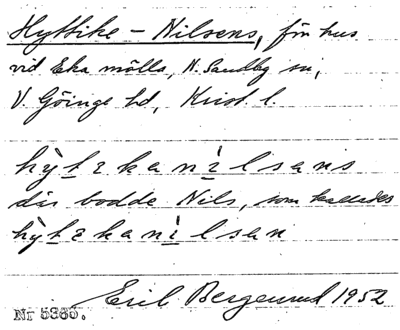 Hyttike - Nilsens, för hus
vid Eka mölla, N. Sandby sn,
V. Göinge hd, Krist. l.
hỳtekanìlsens
där bodde Nils, som kallades
hỳtekanìlsen
Eril Bergenrud 1952
Nr 5365.